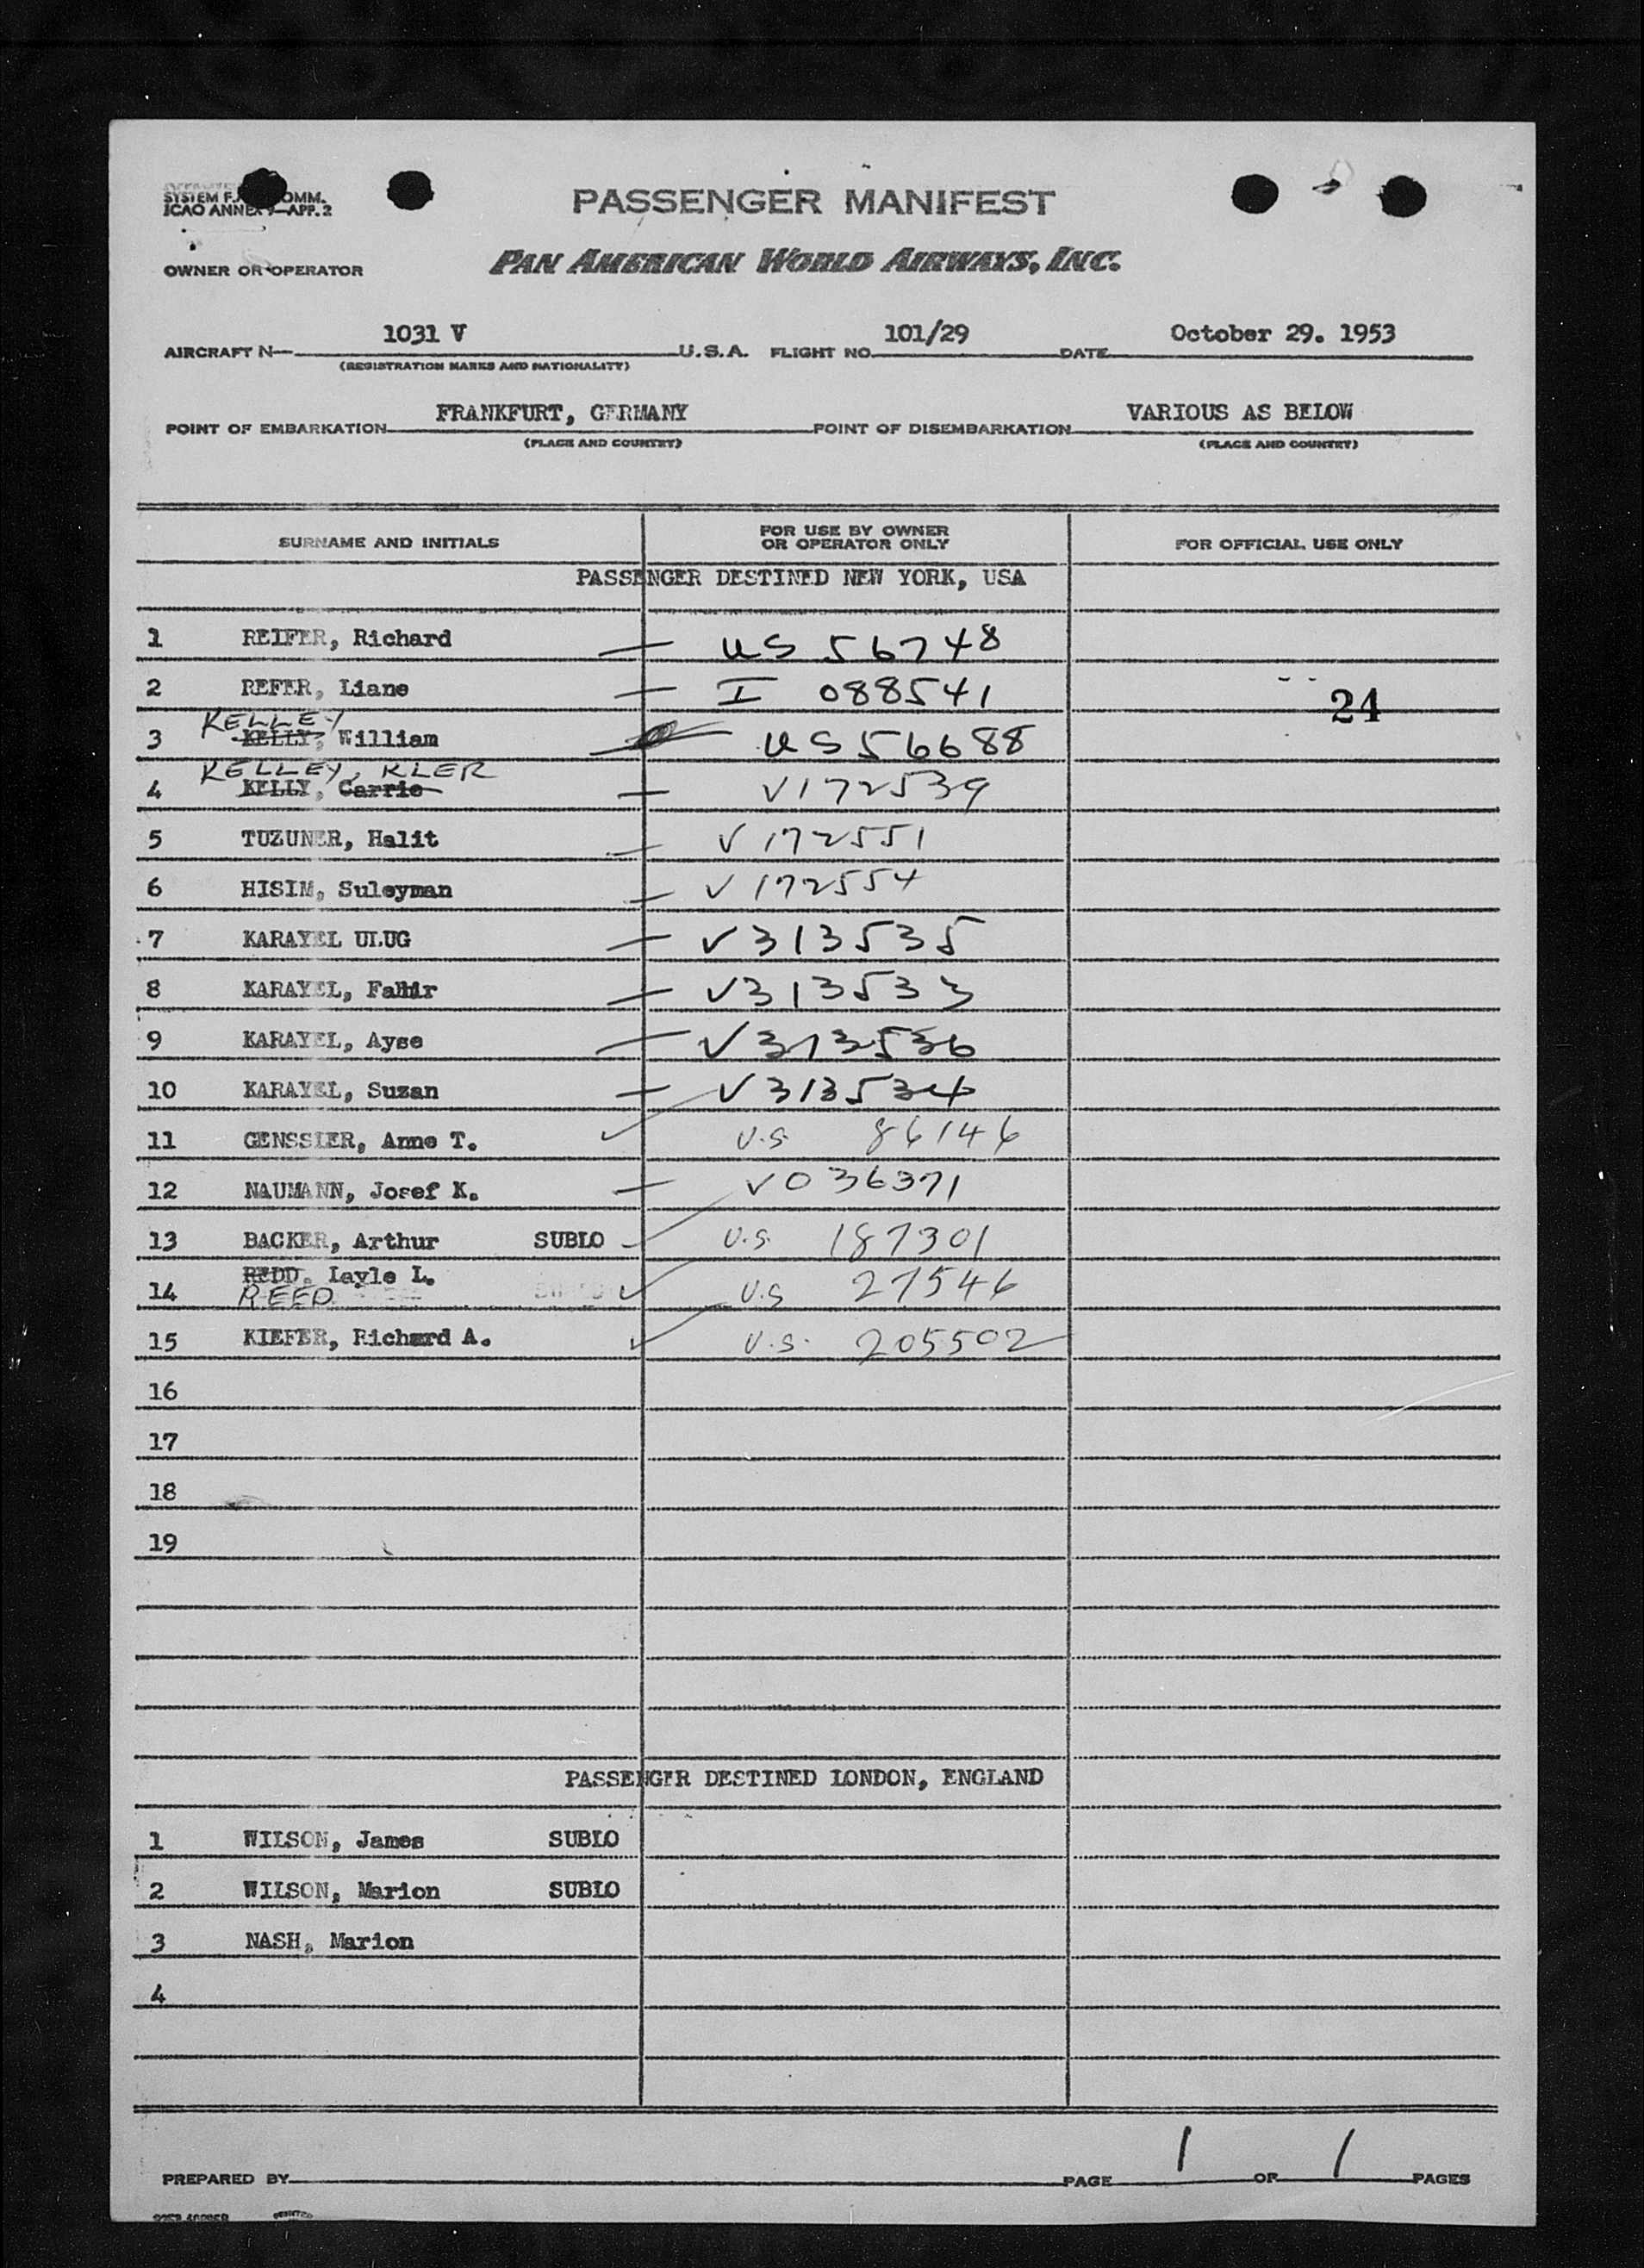 SYSTEM F. COMM.
ICAO ANNEX 9—APP. 2
PASSENGER MANIFEST
OWNER OR OPERATOR PAN AMERICAN WORLD AIRWAYS, INC.
AIRCRAFT N— 1031 V U.S.A. FLIGHT NO. 101/29 DATE October 29. 1953
(REGISTRATION MARKS AND NATIONALITY)
POINT OF EMBARKATION FRANKFURT, GERMANY POINT OF DISEMBARKATION VARIOUS AS BELOW
(PLACE AND COUNTRY) (PLACE AND COUNTRY)
SURNAME AND INITIALS FOR USE BY OWNER OR OPERATOR ONLY FOR OFFICIAL USE ONLY
PASSENGER DESTINED NEW YORK, USA
1 REIFER, Richard — US 56748
2 REFER, Liane — I 088541
24
KELLEY
3 KELLY, William US 56688
KELLEY, KLER
4 KELLY, Carrie — V172539
5 TUZUNER, Halit — V 172551
6 HISIM, Suleyman — V 172554
7 KARAYEL ULUG — V313535
8 KARAYEL, Fahir — V313533
9 KARAYEL, Ayse — V313536
10 KARAYEL, Suzan — V313534
11 GENSSIER, Anne T. ✓ U.S. 86146
12 NAUMANN, Josef K. — V036371
13 BACKER, Arthur SUBLO ✓ U.S. 187301
14 REDD. Layle L. ✓ U.S 27546
REED
15 KIEFER, Richard A. ✓ U.S. 205502
16
17
18
19
PASSENGER DESTINED LONDON, ENGLAND
1 WILSON, James SUBLO
2 WILSON, Marion SUBLO
3 NASH, Marion
4
PREPARED BY PAGE 1 OF 1 PAGES